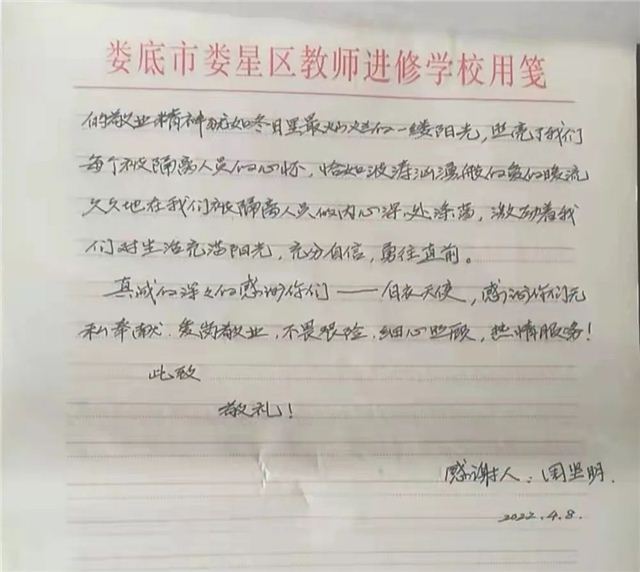 娄底市娄星区教师进修学校用笺
的敬业精神犹如冬日里最灿烂的一缕阳光，照亮了我们
每个被隔离人员的心怀，恰如波涛汹涌般的爱的暖流
久久地在我们被隔离人员的内心深处涤荡，激动着我
们对生活充满阳光，充分自信，勇往直前。
真诚的深深的感谢你们——白衣天使，感谢你们无
私奉献．爱岗敬业，不畏艰险．细心照顾，热情服务！
此致
敬礼！
感谢人：周坚明．
2022.4.8.